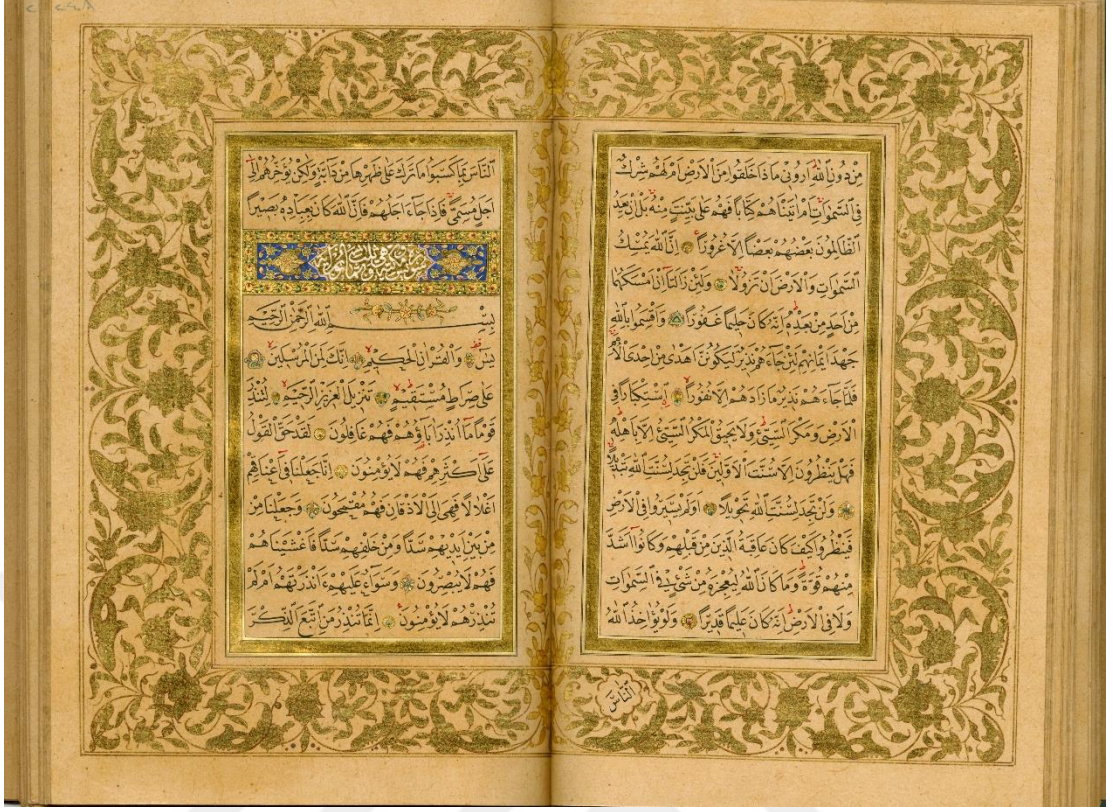 مِنْ دُونِ اللّٰهِ اَرُونِي مَاذَا خَلَقُوا مِنَ الْاَرْضِ اَمْ لَهُمْ شِرْكٌ
فِي السَّمٰوَاتِ اَمْ اٰتَيْنَاهُمْ كِتَابًا فَهُمْ عَلٰى بَيِّنَتٍ مِنْهُ بَلْ اِنْ يَعِدُ
الظَّالِمُونَ بَعْضُهُمْ بَعْضًا اِلَّا غُرُورًا اِنَّ اللّٰهَ يُمْسِكُ
السَّمٰوَاتِ وَالْاَرْضَ اَنْ تَزُولَا وَلَئِنْ زَالَتَا اِنْ اَمْسَكَهُمَا
مِنْ اَحَدٍ مِنْ بَعْدِهِ اِنَّهُ كَانَ حَلِيمًا غَفُورًا وَاَقْسَمُوا بِاللّٰهِ
جَهْدَ اَيْمَانِهِمْ لَئِنْ جَاءَهُمْ نَذِيرٌ لَيَكُونُنَّ اَهْدٰى مِنْ اِحْدَى الْاُمَمِ
فَلَمَّا جَاءَهُمْ نَذِيرٌ مَا زَادَهُمْ اِلَّا نُفُورًا اِسْتِكْبَارًا فِي
الْاَرْضِ وَمَكْرَ السَّيِّئِ وَلَا يَحِيقُ الْمَكْرُ السَّيِّئُ اِلَّا بِاَهْلِهِ
فَهَلْ يَنْظُرُونَ اِلَّا سُنَّتَ الْاَوَّلِينَ فَلَنْ تَجِدَ لِسُنَّتِ اللّٰهِ تَبْدِيلًا
وَلَنْ تَجِدَ لِسُنَّتِ اللّٰهِ تَحْوِيلًا اَوَلَمْ يَسِيرُوا فِي الْاَرْضِ
فَيَنْظُرُوا كَيْفَ كَانَ عَاقِبَةُ الَّذِينَ مِنْ قَبْلِهِمْ وَكَانُوا اَشَدَّ
مِنْهُمْ قُوَّةً وَمَا كَانَ اللّٰهُ لِيُعْجِزَهُ مِنْ شَيْءٍ فِي السَّمٰوَاتِ
وَلَا فِي الْاَرْضِ اِنَّهُ كَانَ عَلِيمًا قَدِيرًا وَلَوْ يُؤَاخِذُ اللّٰهُ
النَّاسَ
النَّاسَ بِمَا كَسَبُوا مَا تَرَكَ عَلٰى ظَهْرِهَا مِنْ دَابَّةٍ وَلٰكِنْ يُؤَخِّرُهُمْ اِلٰى
اَجَلٍ مُسَمًّى فَاِذَا جَاءَ اَجَلُهُمْ فَاِنَّ اللّٰهَ كَانَ بِعِبَادِهِ بَصِيرًا
بِسْمِ اللّٰهِ الرَّحْمٰنِ الرَّحِيمِ
يٰسٓ وَالْقُرْاٰنِ الْحَكِيمِ اِنَّكَ لَمِنَ الْمُرْسَلِينَ
عَلٰى صِرَاطٍ مُسْتَقِيمٍ تَنْزِيلَ الْعَزِيزِ الرَّحِيمِ لِتُنْذِرَ
قَوْمًا مَا اُنْذِرَ اٰبَاؤُهُمْ فَهُمْ غَافِلُونَ لَقَدْ حَقَّ الْقَوْلُ
عَلٰى اَكْثَرِهِمْ فَهُمْ لَا يُؤْمِنُونَ اِنَّا جَعَلْنَا فِي اَعْنَاقِهِمْ
اَغْلَالًا فَهِيَ اِلَى الْاَذْقَانِ فَهُمْ مُقْمَحُونَ وَجَعَلْنَا مِنْ
مِنْ بَيْنِ اَيْدِيهِمْ سَدًّا وَمِنْ خَلْفِهِمْ سَدًّا فَاَغْشَيْنَاهُمْ
فَهُمْ لَا يُبْصِرُونَ وَسَوَاءٌ عَلَيْهِمْ ءَاَنْذَرْتَهُمْ اَمْ لَمْ
تُنْذِرْهُمْ لَا يُؤْمِنُونَ اِنَّمَا تُنْذِرُ مَنِ اتَّبَعَ الذِّكْرَ